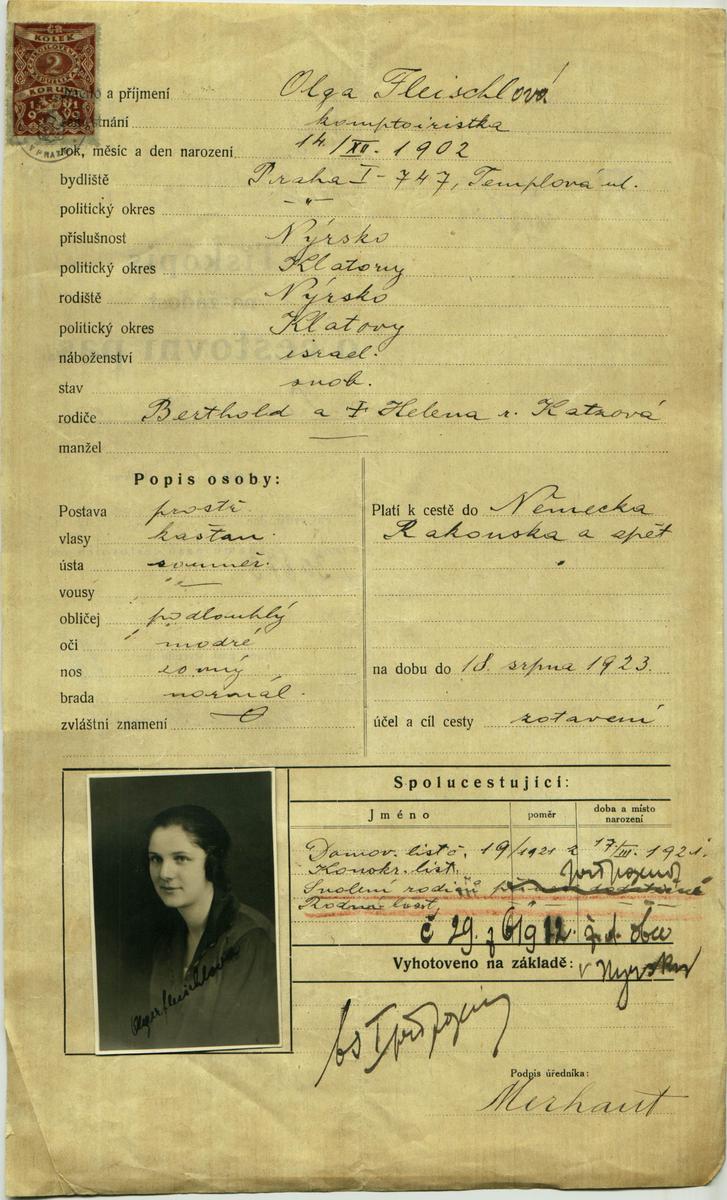 KOLEK
2
KORUNY
jméno a příjmení Olga Fleischlová
zaměstnání komptoiristka
rok, měsíc a den narození 14./XII. 1902
bydliště Praha I - 747, Templová ul.
politický okres -"-
příslušnost Nýrsko
politický okres Klatovy
rodiště Nýrsko
politický okres Klatovy
náboženství israel.
stav svob.
rodiče Berthold a Helena r. Katzová
manžel
Popis osoby:
Postava prostř.
vlasy kaštan.
ústa souměr.
vousy
obličej podlouhlý
oči modré
nos rovný
brada normál.
zvláštní znamení
Platí k cestě do Německa
Rakouska a zpět
na dobu do 18. srpna 1923.
účel a cíl cesty zotavení
Spolucestující:
Jméno poměr doba a místo narození
Domov. list č. 19/1921 z 17/III. 1921.
Konskr. list.
Svolení rodičů
Rodný list
č 29. 1922 obce
Vyhotoveno na základě: v Nýrsku
Olga Fleischlová
Podpis úředníka:
Merhaut